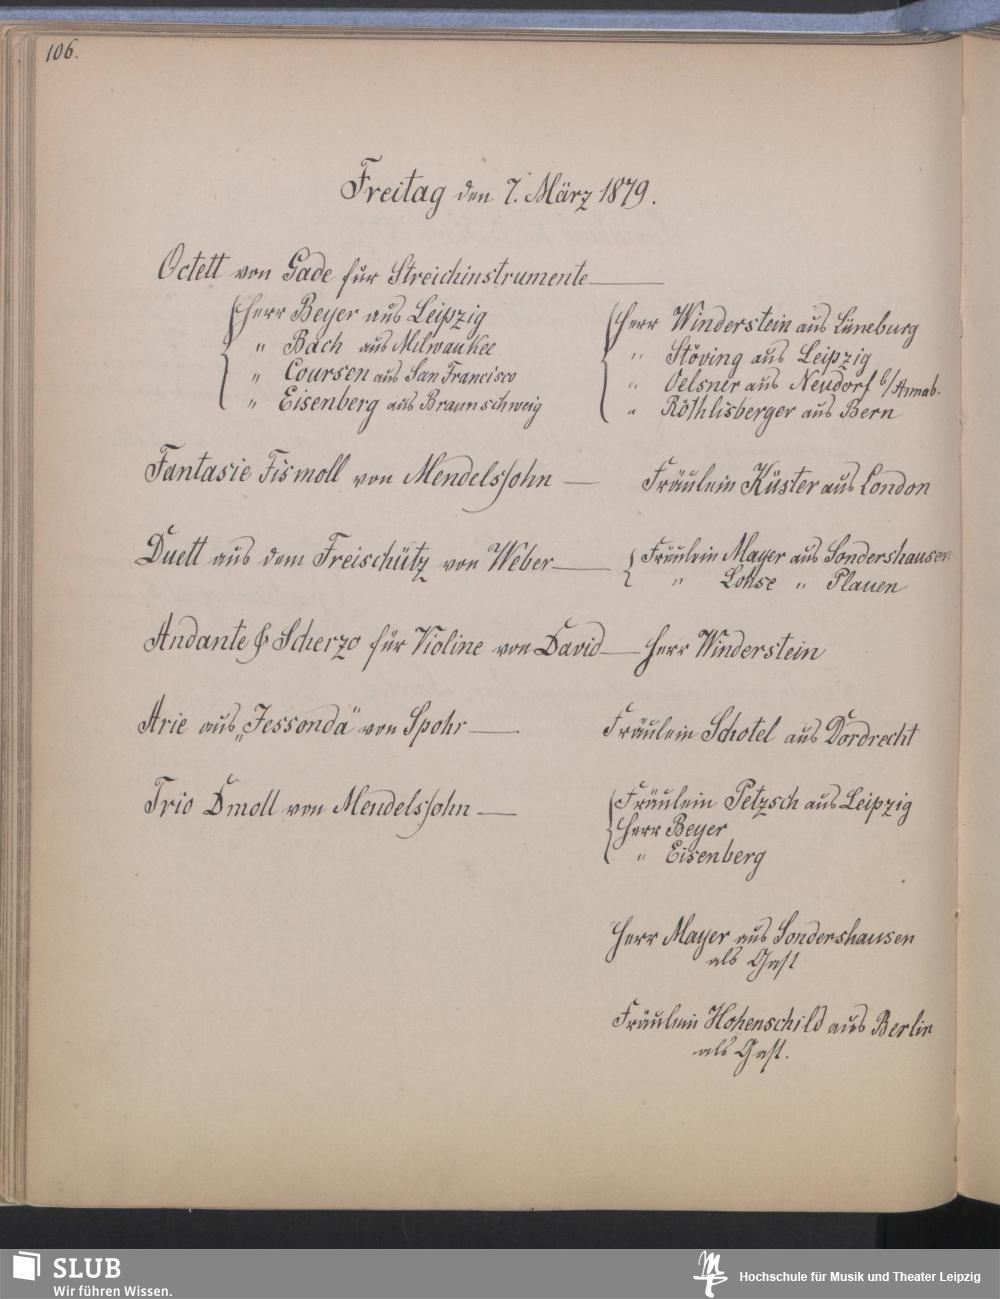 106.
Freitag den 7. März 1879.
Octett von Gade für Streichinstrumente
Herr Beyer aus Leipzig
" Bach aus Milwaukee
" Coursen aus San Francisco
" Eisenberg aus Braunschweig
Herr Winderstein aus Lüneburg
" Stöving aus Leipzig
" Oelsner aus Neudorf b/Annab.
" Röthlisberger aus Bern
Fantasie Fismoll von Mendelssohn — Fräulein Küster aus London
Duett aus dem Freischütz von Weber — Fräulein Mayer aus Sondershausen
" Lohse " Plauen
Andante & Scherzo für Violine von David — Herr Winderstein
Arie aus „Jessonda" von Spohr — Fräulein Schotel aus Dordrecht
Trio Dmoll von Mendelssohn — Fräulein Petzsch aus Leipzig
Herr Beyer
" Eisenberg
Herr Mayer aus Sondershausen
als Gast
Fräulein Hohenschild aus Berlin
als Gast.
SLUB
Wir führen Wissen.
Hochschule für Musik und Theater Leipzig